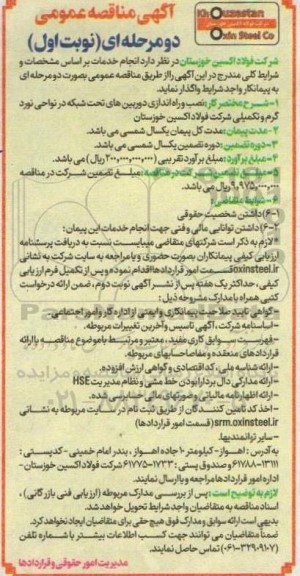 آگهی مناقصه عمومی
دو مرحله ای (نوبت اول)
Khouzestan
Oxin Steel Co
شرکت فولاد اکسین خوزستان در نظر دارد انجام خدمات بر اساس مشخصات و
شرایط کلی مندرج در این آگهی را از طریق مناقصه عمومی بصورت دو مرحله ای
به پیمانکار واجد شرایط واگذار نماید.
۱- شرح مختصر کار: نصب و راه اندازی دوربین های تحت شبکه در نواحی نورد
گرم و تکمیلی شرکت فولاد اکسین خوزستان
۲- مدت پیمان: مدت کل پیمان یکسال شمسی می باشد.
۳- دوره تضمین: دوره تضمین یکسال شمسی می باشد.
۴- مبلغ برآورد: مبلغ برآورد تقریبی (۲۰۰,۰۰۰,۰۰۰,۰۰۰ ریال) می باشد.
۵- مبلغ تضمین شرکت در مناقصه: مبلغ تضمین شرکت در مناقصه
۹,۰۹۷۵,۰۰۰,۰۰۰ ریال می باشد.
۶- شرایط متقاضی:
۶-۱) داشتن شخصیت حقوقی
۶-۲) داشتن توانایی مالی و فنی جهت انجام خدمات این پیمان:
* لازم به ذکر است شرکتهای متقاضی میبایست نسبت به دریافت پرسشنامه
ارزیابی کیفی پیمانکاران بصورت حضوری و یا مراجعه به سایت شرکت به نشانی
oxinsteel.ir قسمت امور قراردادها اقدام نموده و پس از تکمیل فرم ارزیابی
کیفی، حداکثر یک هفته پس از نشر آگهی نوبت دوم، ضمن ارائه درخواست
کتبی همراه با مدارک مشروحه ذیل:
- گواهی تایید صلاحیت پیمانکاری و ایمنی از اداره کار و امور اجتماعی.
- اساسنامه شرکت، آگهی تاسیس و آخرین تغییرات مربوطه.
- فهرست سوابق کاری مفید، معتبر و مرتبط با موضوع مناقصه با ارائه
قراردادهای منعقده و مفاصاحسابهای مربوطه.
- ارائه شناسه ملی، کد اقتصادی و گواهی ارزش افزوده.
- ارائه مدارکی دال بر دارا بودن خط مشی و نظام مدیریت HSE
- ارائه اظهارنامه مالیاتی و صورتهای مالی حسابرسی شده.
- اخذ کد تامین کنندگان از طریق ثبت نام در سایت مربوطه به نشانی
srm.oxinsteel.ir (قسمت امور قراردادها)
- سایر توانمندیها.
به آدرس: اهواز - کیلومتر ۱۰ جاده اهواز، بندر امام خمینی - کدپستی:
۶۱۷۸۸-۱۳۱۱۱ و صندوق پستی: ۱۷۳۳-۶۱۷۷۵ شرکت فولاد اکسین خوزستان -
اداره امور قراردادها مراجعه و یا ارسال نمایند.
لازم به توضیح است: پس از بررسی مدارک مربوطه (ارزیابی فنی بازرگانی)،
اسناد مناقصه به متقاضیان واجد شرایط تحویل خواهد شد.
بدیهی است ارائه سوابق و مدارک فوق هیچ حقی برای متقاضیان ایجاد نخواهد کرد.
ضمنا متقاضیان می توانند جهت کسب اطلاعات بیشتر با شماره تلفن
(۰۶۱-۳۲۹۰۹۱۰۷) تماس حاصل نمایند.
مدیریت امور حقوقی و قراردادها